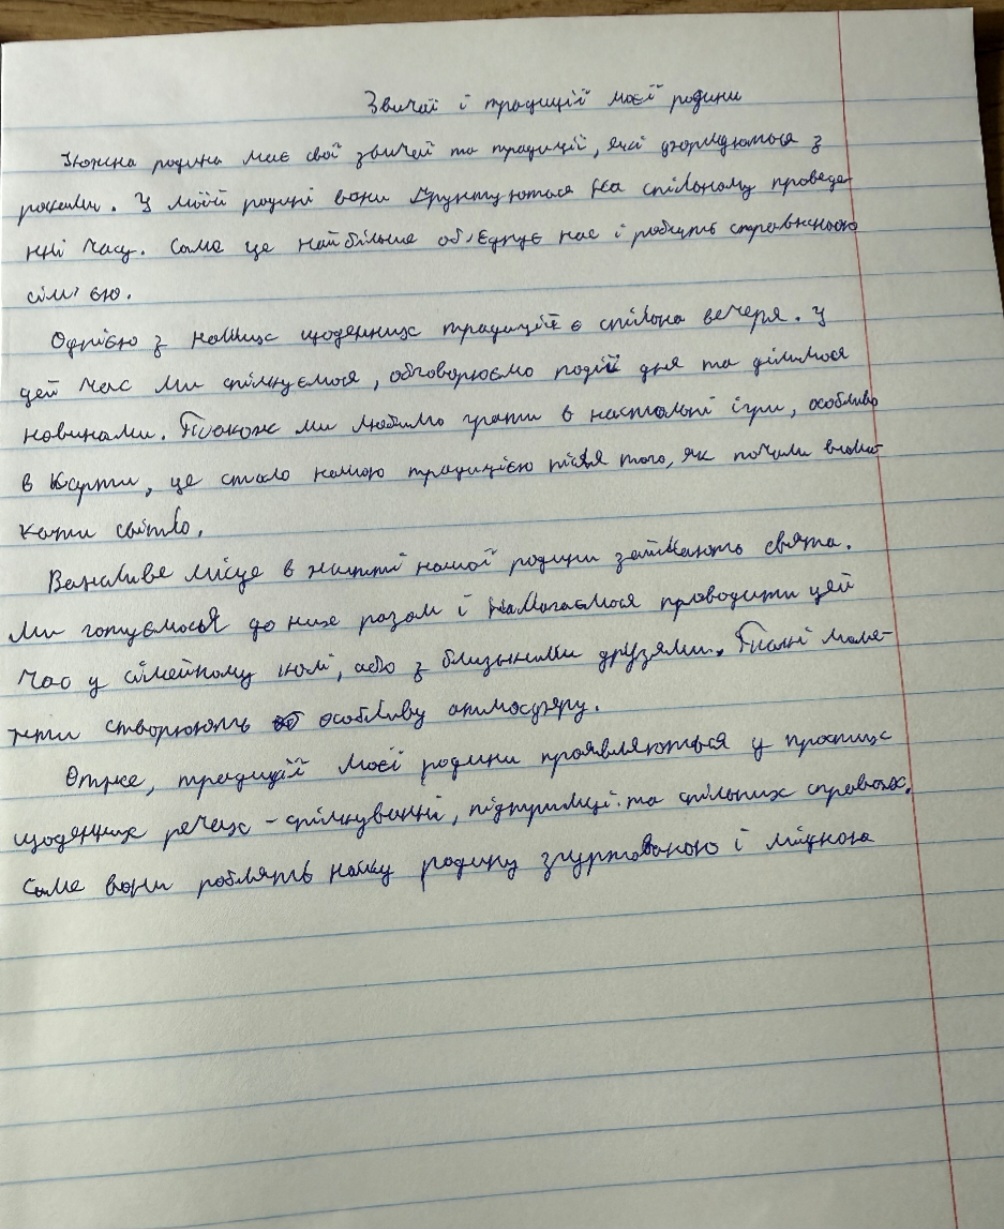 Звичаї і традиції моєї родини
Кожна родина має свої звичаї та традиції, які формуються з
роками. У моїй родині вони ґрунтуються на спільному проведе-
нні часу. Саме це найбільше об'єднує нас і робить справжньою
сім'єю.
Однією з наших щоденних традицій є спільна вечеря. У
цей час ми спілкуємося, обговорюємо події дня та ділимося
новинами. Також ми любимо грати в настольні ігри, особливо
в карти, це стало нашою традицією після того, як почали вими-
кати світло.
Важливе місце в житті нашої родини займають свята.
Ми готуємося до них разом і намагаємося проводити цей
час у сімейному колі, або з близькими друзями. Такі моме-
нти створюють особливу атмосферу.
Отже, традиції моєї родини проявляються у простих
щоденних речах - спілкуванні, підтримці та спільних справах.
Саме вони роблять нашу родину згуртованою і міцною